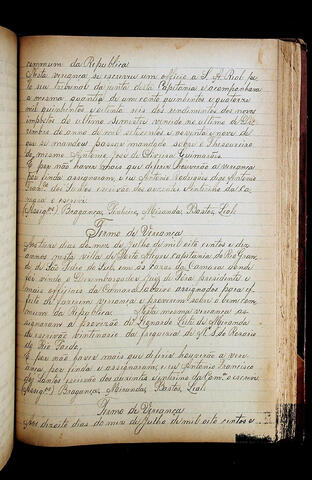 commum da Republica
Nesta vereança se escreveu um officio a S. A. Real pe
lo seu tribunal da junta desta Capitania e acompanhava
a mesma quantia de um conto quinhentos e quatorze
mil quinhentos e setenta reis dos rendimentos dos novos
impostos do ultimo semestre vencido no ultimo de De
zembro do anno de mil setecentos e noventa e nove de
que se mandou passar mandado sobre o Thesoureiro
do mesmo Antonio José de Oliveira Guimarães
E por não haver mais que diferir houverão a vereança
por finda e assignaram, e eu Antonio Rodrigues digo Antonio
Franco dos Santos escrivão dos auzentes e interino da Ca
mara o escrevi
(Assigos) Bragança, Pinheiro, Miranda, Bastos, Leal.
Termo de Vereança
Aos doze dias do mez de Julho de mil oito centos e dez
annos nesta villa de Porto Alegre capitania do Rio Grande
de São Pedro do Sul em os Paços da Camara donde
foi vindo o Dezembargador juiz de fora presidente e
mais officiaes da Camara abaixo assignados para ef
feito de fazerem vereança e proverem sobre o bem com
mum da Republica Nesta mesma vereança as
signaram a provizão do Leonardo Leite de Miranda
de escrivão vintenario da freguesia de N. S. do Rosario
do Rio Pardo
E por não haver mais que diferir houverão a verean
ça por finda e assignaram; e eu Antonio Francisco
dos Santos escrivão dos auzentes e interino da Camra o escrevi
(Assigos) Bragança, Miranda, Bastos, Leal.
Termo de Vereança
Aos dezoito dias do mez de Julho de mil oito centos e